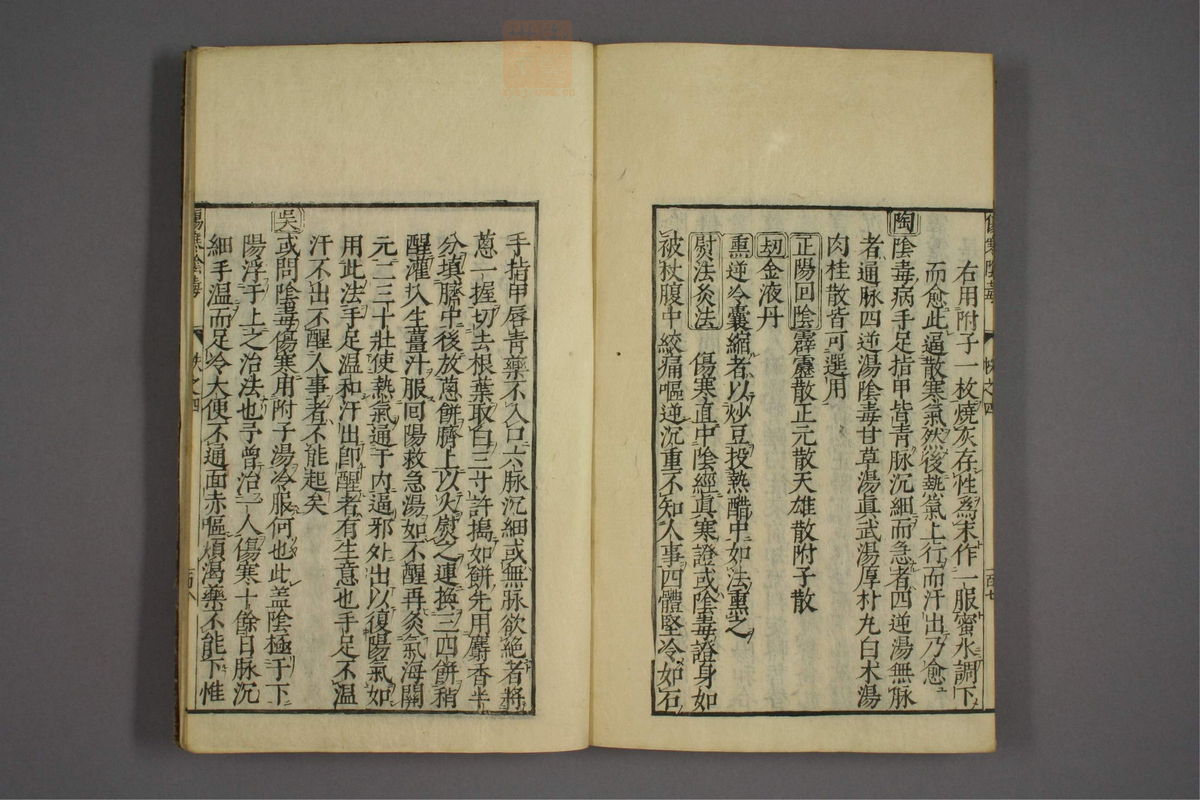 傷寒陰毒 帙之四 百七
右用附子一枚燒灰存性爲末作一服蜜水調下
而愈此逼散寒氣然後熱氣上行而汗出乃愈
陶陰毒病手足指甲皆青脉沉細而急者四逆湯無脉
者通脉四逆湯陰毒甘草湯眞武湯厚朴丸白朮湯
肉桂散皆可選用
正陽回陰霹靂散正元散天雄散附子散
刼金液丹
熏逆冷囊縮者以炒豆投熱醋中如法熏之
熨法灸法 傷寒直中陰經眞寒證或陰毒證身如
被杖腹中絞痛嘔逆沉重不知人事四體堅冷如石
手指甲唇青藥不入口六脉沉細或無脉欲絕者將
蔥一握切去根葉取白三寸許搗如餅先用麝香半
分填臍中後放蔥餅臍上以火熨之連換三四餅稍
醒灌扒生薑汁服回陽救急湯如不醒再灸氣海關
元二三十壯使熱氣通于内逼邪处出以復陽氣如
用此法手足温和汗出卽醒者有生意也手足不温
汗不出不醒人事者不能起矣
吳或問陰毒傷寒用附子湯冷服何也此盖陰極于下
陽浮于上之治法也予曾治一人傷寒十餘日脉沉
細手温而足冷大便不通面赤嘔煩渴藥不能下惟
傷寒陰毒 帙之四 百八